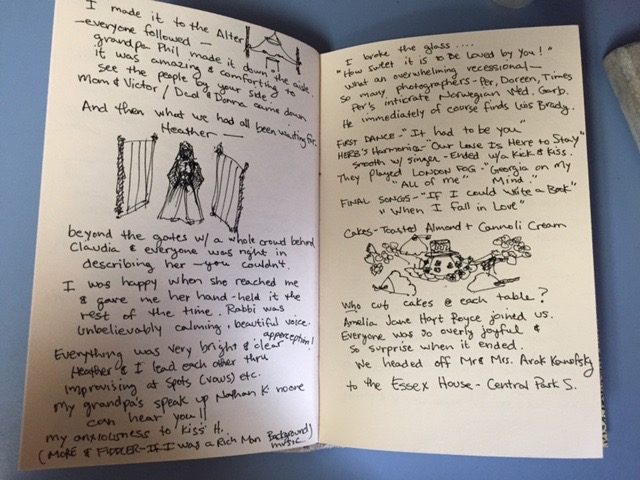 I made it to the Alter
-everyone followed -
grandpa Phil made it down the aisle.
it was amazing & comforting to
see the people by your side.
Mom & Victor / Dad & Donna came down
And then what we had all been waiting for.
Heather -
beyond the gates w/ a whole crowd behind
Claudia & everyone was right in
describing her - you couldn't.
I was happy when she reached me
& gave me her hand - held it the
rest of the time. Rabbi was
unbelievably calming, beautiful voice.
apperception!
Everything was very bright & clear
Heather & I lead each other thru
improvising at spots (vows) etc.
my grandpa's speak up Nathan K. noone
can hear you!!
my anxiousness to kiss H..
(MORE & FIDDLER-If I was a Rich Man Background music)
I broke the glass ....
"How sweet it is to be loved by you!"
what an overwhelming recessional -
So many photographers - Per, Doreen, Times
Per's intricrate Norwegian Wed. Garb.
He immediately of course finds Lois Brady.
FIRST DANCE - "It had to be you"
HERB'S Harmonica - "Our Love Is Here to Stay"
Smooth w/ singer - Ended w/a Kick & Kiss.
They played LONDON FOG - "Georgia on My Mind"
"All of me"
FINAL SONGS - "If I could Write a Book"
"When I fall in Love"
Cakes - Toasted Almond + Cannoli Cream
Who cut cakes @ each table?
Amelia Jane Hart Royce joined us.
Everyone was so overly joyful &
so surprise when it ended.
We headed off Mr & Mrs.
to the Essex House - Central Park S.